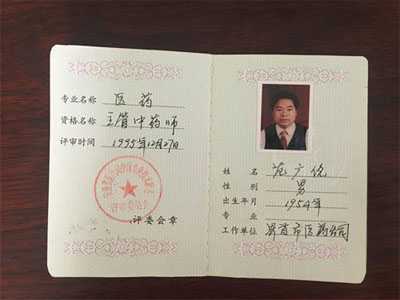 专业名称 医药
资格名称 主管中药师
评审时间 1995年12月27日
评委会章
姓名 范广伦
性别 男
出生年月 1954年
专业
工作单位 市医药公司